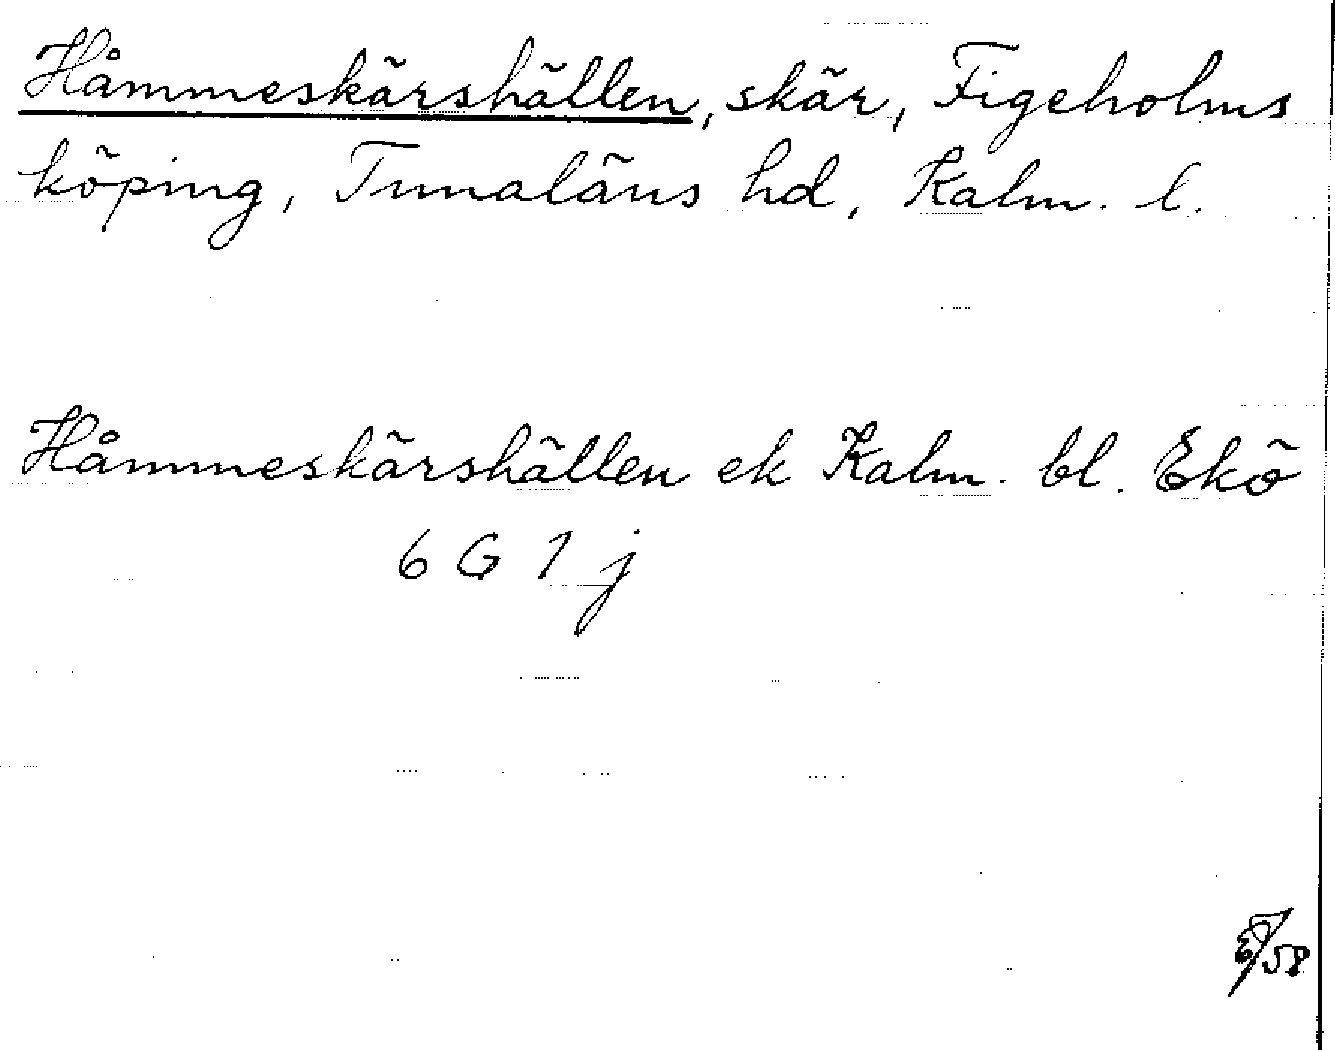 Håmmeskärshällen, skär, Figeholms
köping, Tunaläns hd, Kalm. l.
Håmmeskärshällen ek Kalm. bl. Ekö
6 G 1 j
58